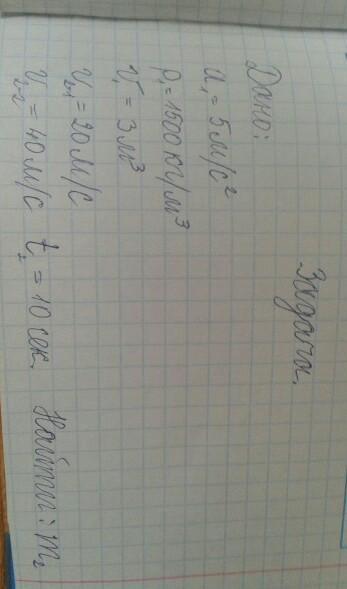 Задача.
Дано:
a₁ = 5 м/с²
ρ₁ = 1500 кг/м³
V₁ = 3 м³
V₂₁ = 20 м/с
V₂₂ = 40 м/с t₂ = 10 сек. Найти: m₂